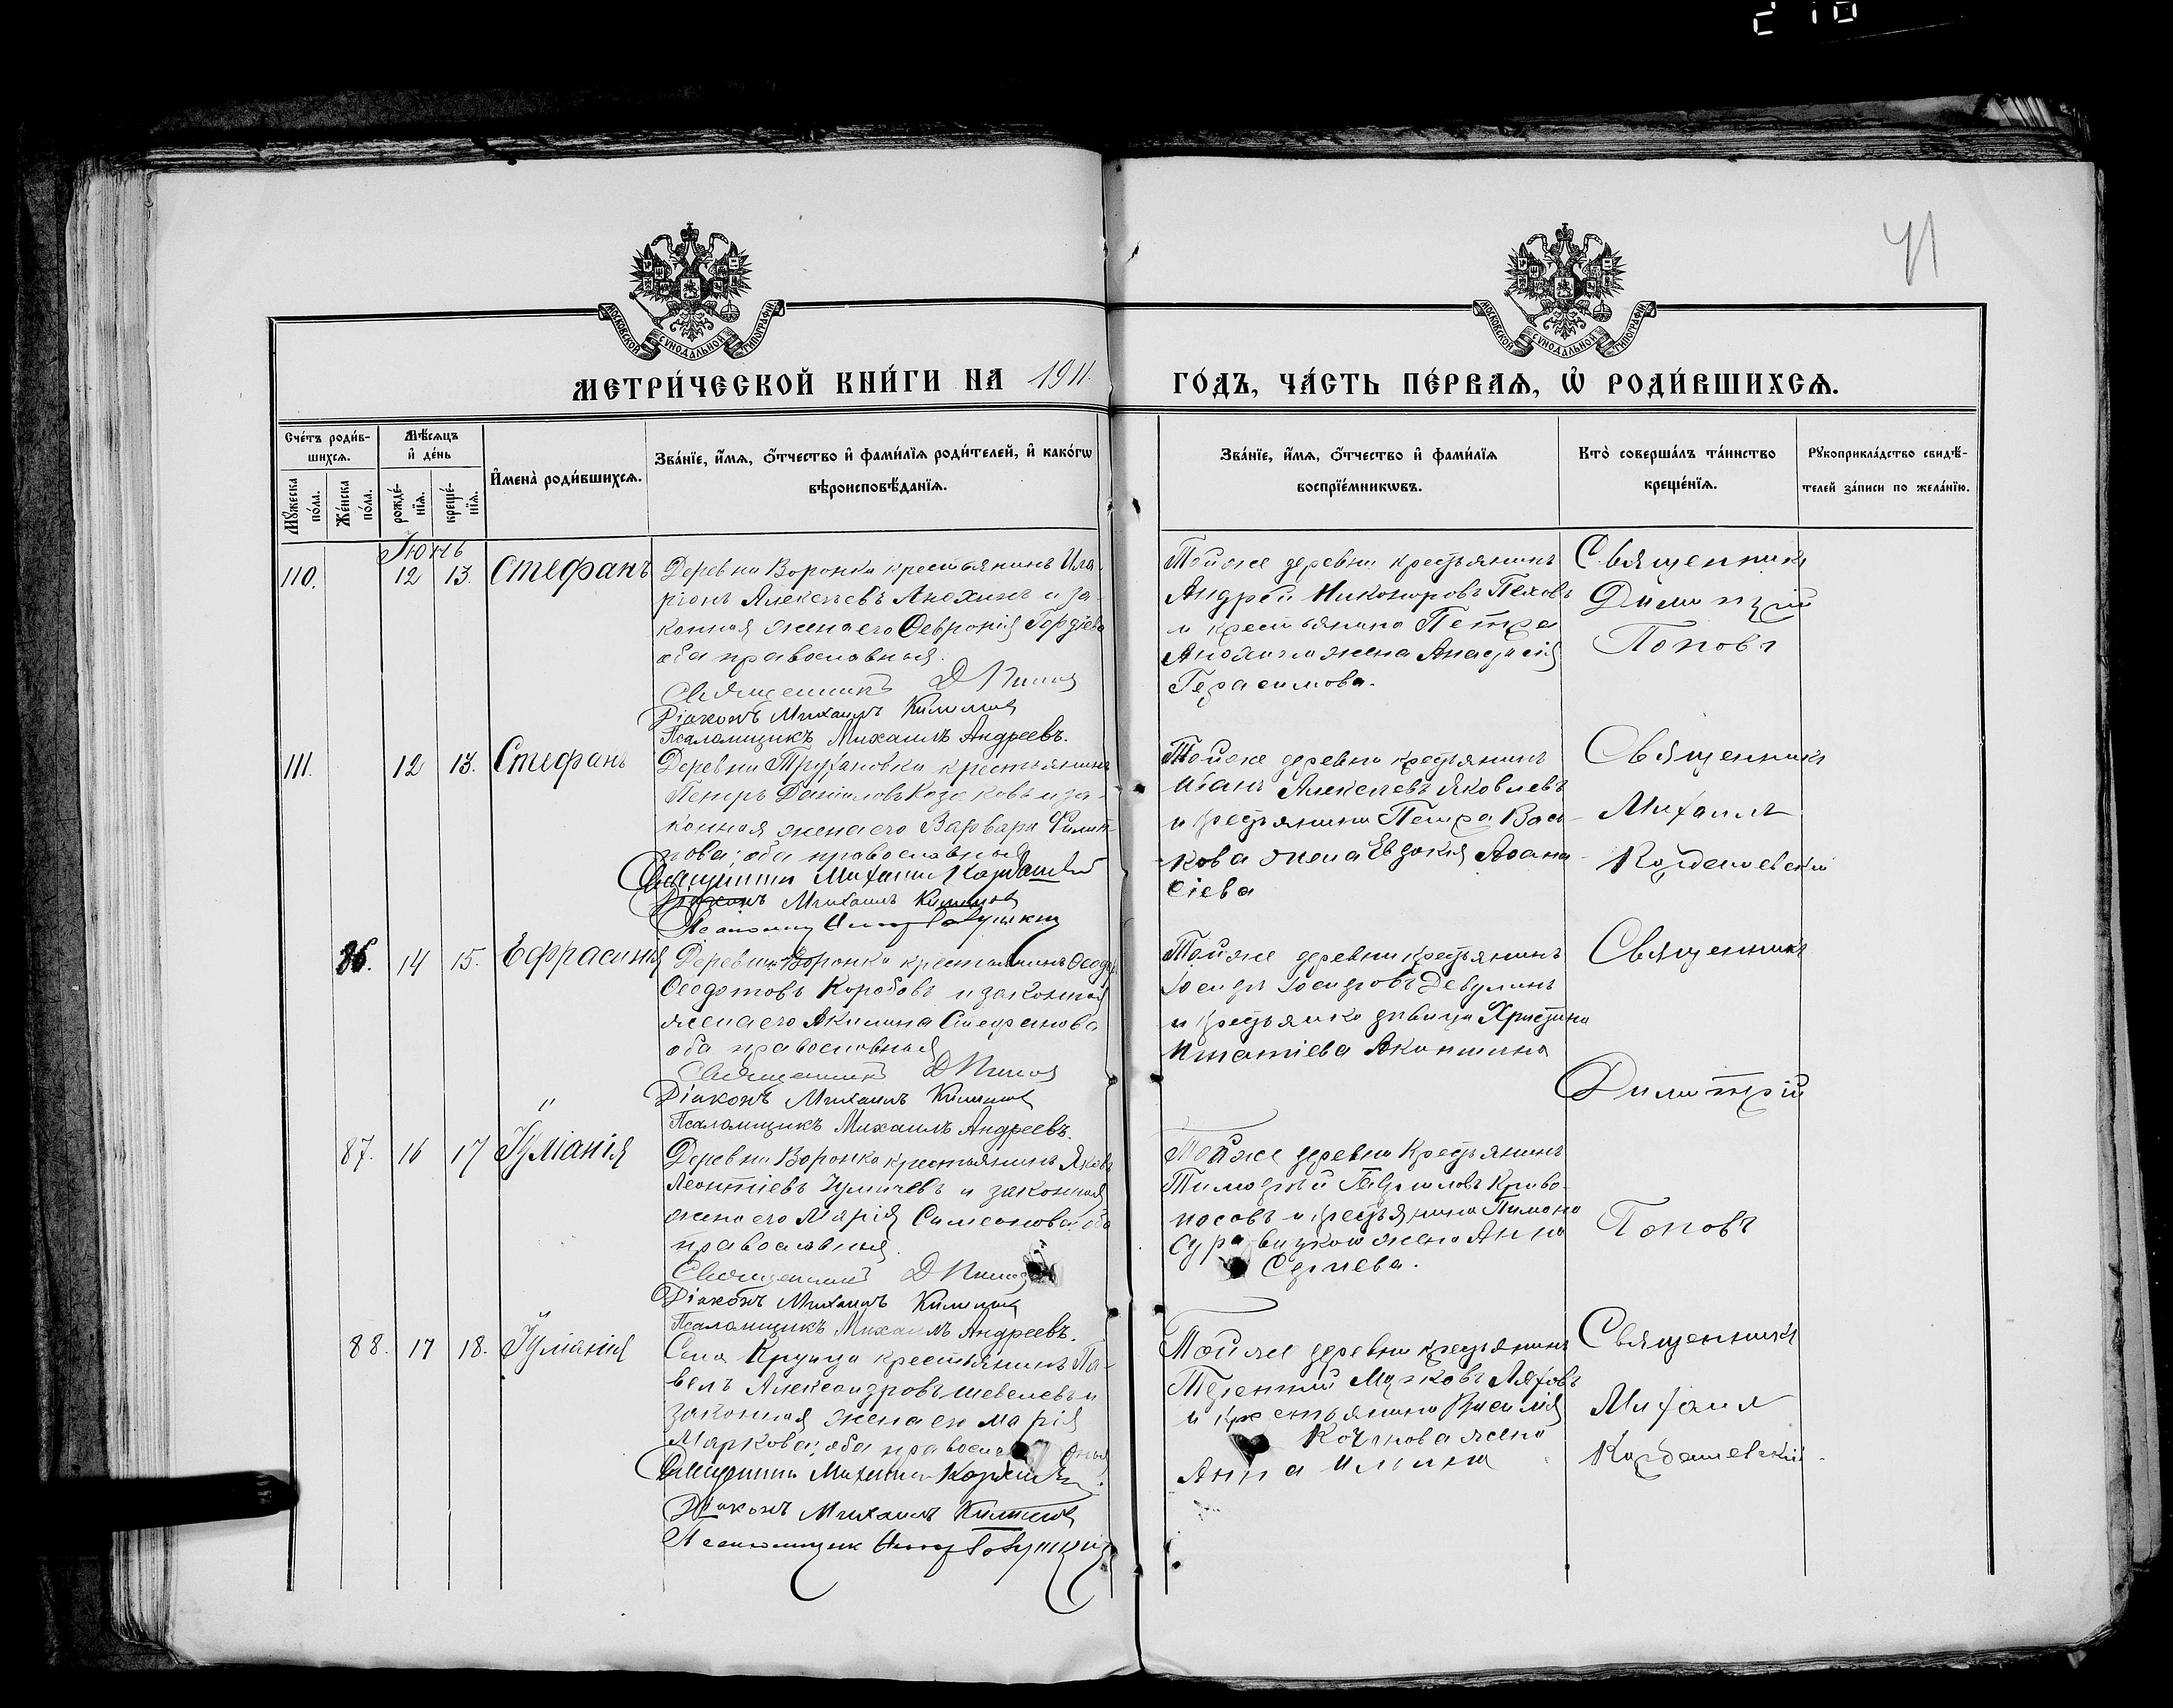 210
41
МОСКОВСКОЙ СѴНОДАЛЬНОЙ ТИПОГРАФІИ
МОСКОВСКОЙ СѴНОДАЛЬНОЙ ТИПОГРАФІИ
МЕТРИ́ЧЕСКОЙ КНИ́ГИ НА 1911. ГО́ДЪ, ЧА́СТЬ ПЕ́РВАѦ, Ѽ РОДИ́ВШИХСѦ.
Сче́тъ роди́в-
шихсѧ.
Мꙋ́жеска по́ла.
Же́нска по́ла.
Мѣ́сѧцъ
и҆ де́нь
рожде́-
нїѧ.
креще́-
нїѧ.
И҆мена̀ роди́вшихсѧ.
Зва́нїе, и҆́мѧ, ѻ҆́тчество и҆ фами́лїѧ роди́телей, и҆ како́гѡ
вѣроисповѣ́данїѧ.
Зва́нїе, и҆́мѧ, ѻ҆́тчество и҆ фами́лїѧ
воспрїе́мникѡвъ.
Кто̀ соверша́лъ та́инство
креще́нїѧ.
Рꙋкоприкла́дство свидѣ́-
телей за́писи по жела́нїю.
Іюнь
110. 12 13. Стефанъ
Деревни Воронка крестьянинъ Ила-
ріонъ Алексѣевъ Анохинъ и за-
конная жена его Февронія Гордіева
оба православные.
Священникъ Д Попов
Діаконъ Михаилъ
Псаломщикъ Михаилъ Андреевъ.
Тойже деревни крестьянинъ
Андрей Никоноровъ Пеховъ
и крестьянина Петра
Анохина жена Анастасія
Герасимова.
Священникъ
Димитрій
Поповъ
111. 12 13. Стефанъ
Деревни Труфановки крестьянинъ
Петръ Даниловъ Казаковъ и за-
конная жена его Варвара Филип-
пова; оба православные
Священникъ Михаилъ
Діаконъ Михаилъ
Тойже деревни крестьянинъ
Иванъ Алексѣевъ Яковлевъ
и крестьянина Петра
кова жена Евдокія Афана-
сіева
Священникъ
Михаилъ
86. 14 15. Ефрасинія
Деревни Воронка крестьянинъ Феодоръ
Феодотовъ Коробовъ и законная
жена его Акилина Стефанова
оба православные
Священникъ Д Попов
Діаконъ Михаилъ
Псаломщикъ Михаилъ Андреевъ.
Тойже деревни крестьянинъ
Іосифъ Іосифовъ Девулинъ
и крестьянка дѣвица Христина
Игнатіева Аканшина
Священникъ
Димитрій
Поповъ
87. 16 17 Іуліанія
Деревни Воронка крестьянинъ Яковъ
Леонтіевъ и законная
жена его Марія Симеонова; оба
православные.
Священникъ Д Попов
Діаконъ Михаилъ
Псаломщикъ Михаилъ Андреевъ.
Тойже деревни крестьянинъ
Тимофей Гавриловъ Криво-
носовъ и крестьянина Пимона
жена Анна
Сергіева.
88. 17 18. Іуліанія
Села Крупца крестьянинъ Па-
велъ Александровъ Шевелевъ и
законная жена его Марія
Маркова; оба православные
Священникъ Михаилъ
Діаконъ Михаилъ
Псаломщикъ
Тойже деревни крестьянинъ
Терентій Марковъ Ляховъ
и крестьянина Василія
жена
Анна Ильина
Священникъ
Михаил